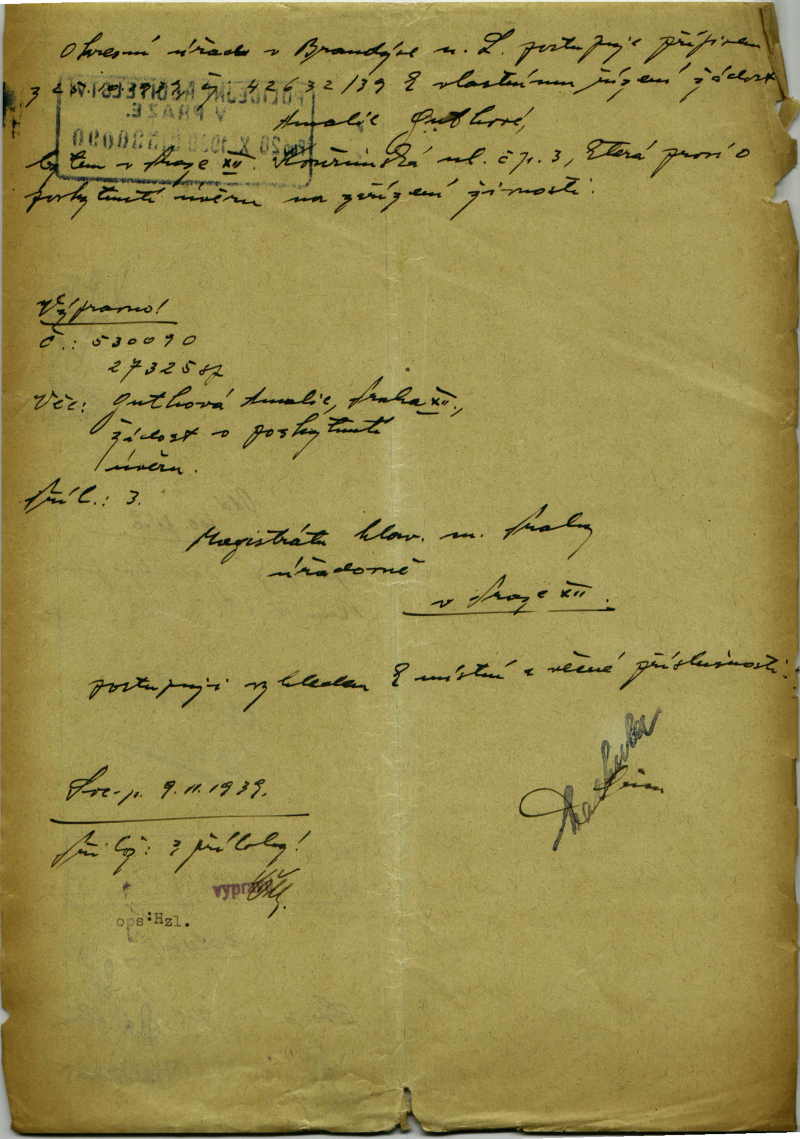 Okresní úřad v Brandýse n. L. postupuje přípisem
č. 42632/39 k vlastnímu řízení žádost
Amalie Guthové,
bytem v Praze XII. Kouřimská ul. čp. 3, která prosí o
poskytnutí úvěru na zřízení živnosti.
POLICEJNÍ ŘEDITELSTVÍ
V PRAZE.
20. X. 1939 530090
Výpravno!
č.: 530090
27325
Věc: Guthová Amalie, Praha XII.,
žádost o poskytnutí
úvěru.
Příl.: 3.
Magistrátu hlav. m. Prahy
úřadovně
v Praze XII.
postupuji vzhledem k místní a věcné příslušnosti.
9.11.1939.
Přilož: 3 přílohy!
vyprav
ops:Hzl.